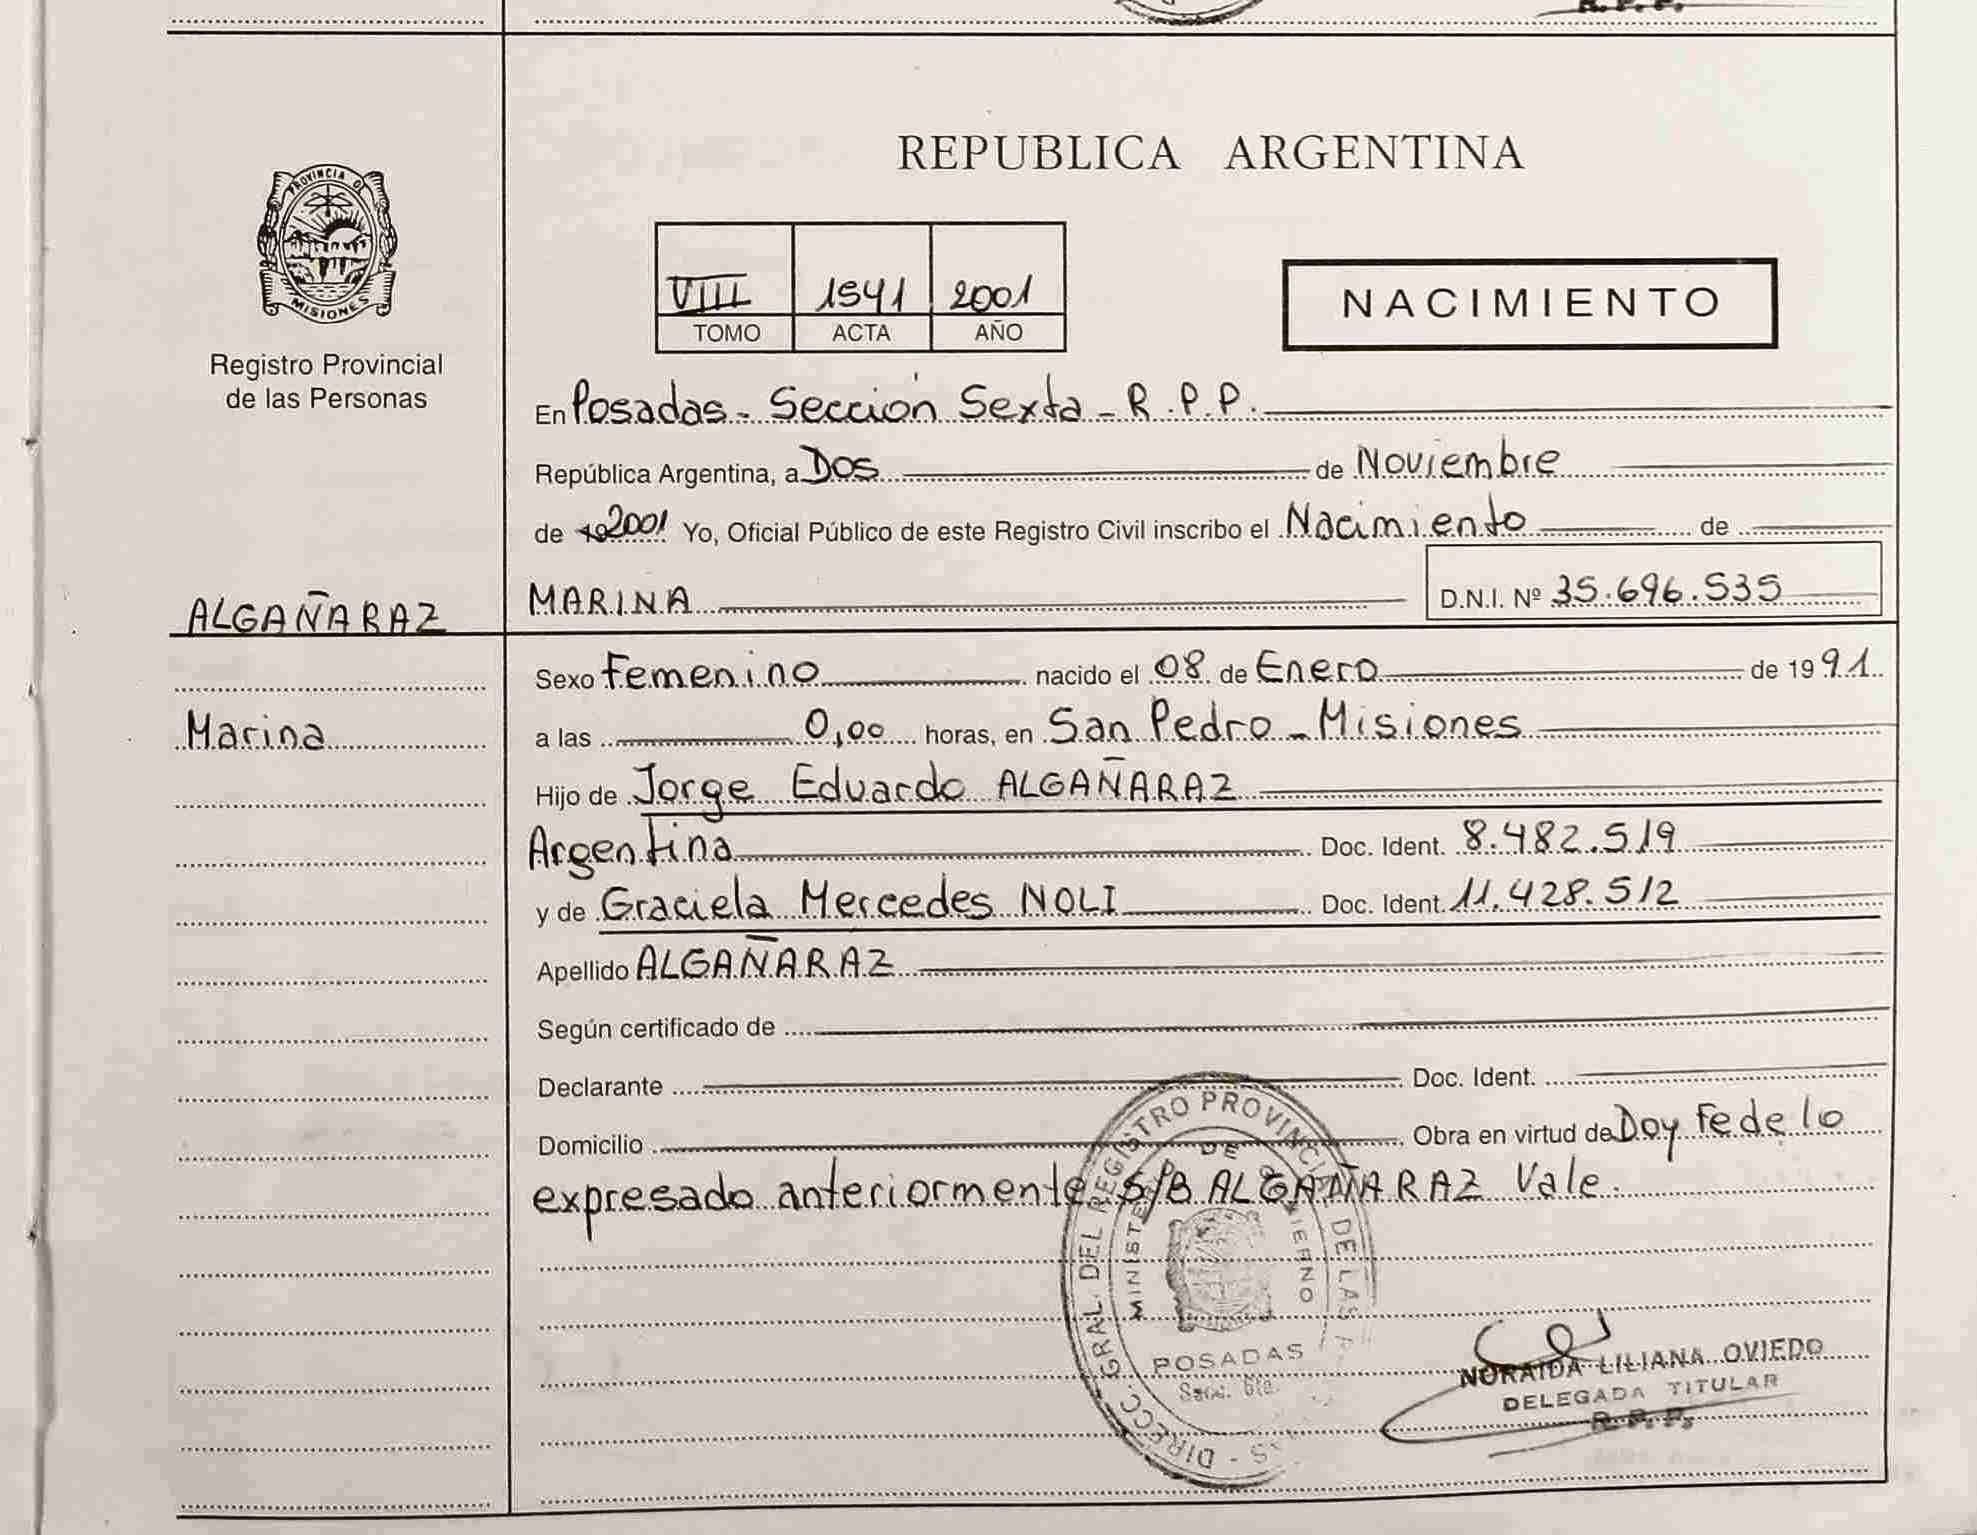 R.P.P.
REPUBLICA ARGENTINA
PROVINCIA DE
MISIONES
Registro Provincial
de las Personas
VIII 1541 2001
TOMO ACTA AÑO
NACIMIENTO
En Posadas - Sección Sexta - R.P.P.
República Argentina, a Dos de Noviembre
de 19 2001 Yo, Oficial Público de este Registro Civil inscribo el Nacimiento de
ALGAÑARAZ
MARINA D.N.I. Nº 35.696.535
Sexo Femenino nacido el 08 de Enero de 1991
Marina
a las 0,00 horas, en San Pedro - Misiones
Hijo de Jorge Eduardo ALGAÑARAZ
Argentina Doc. Ident. 8.482.519
y de Graciela Mercedes NOLI Doc. Ident. 11.428.512
Apellido ALGAÑARAZ
Según certificado de
Declarante Doc. Ident.
Domicilio Obra en virtud de Doy Fe de lo
expresado anteriormente S/B ALGAÑARAZ Vale.
DIRECC. GRAL. DEL REGISTRO PROVINCIAL DE LAS
MINISTERIO DE GOBIERNO
POSADAS
Secc. 6ta.
NORAIDA LILIANA OVIEDO
DELEGADA TITULAR
R.P.P.